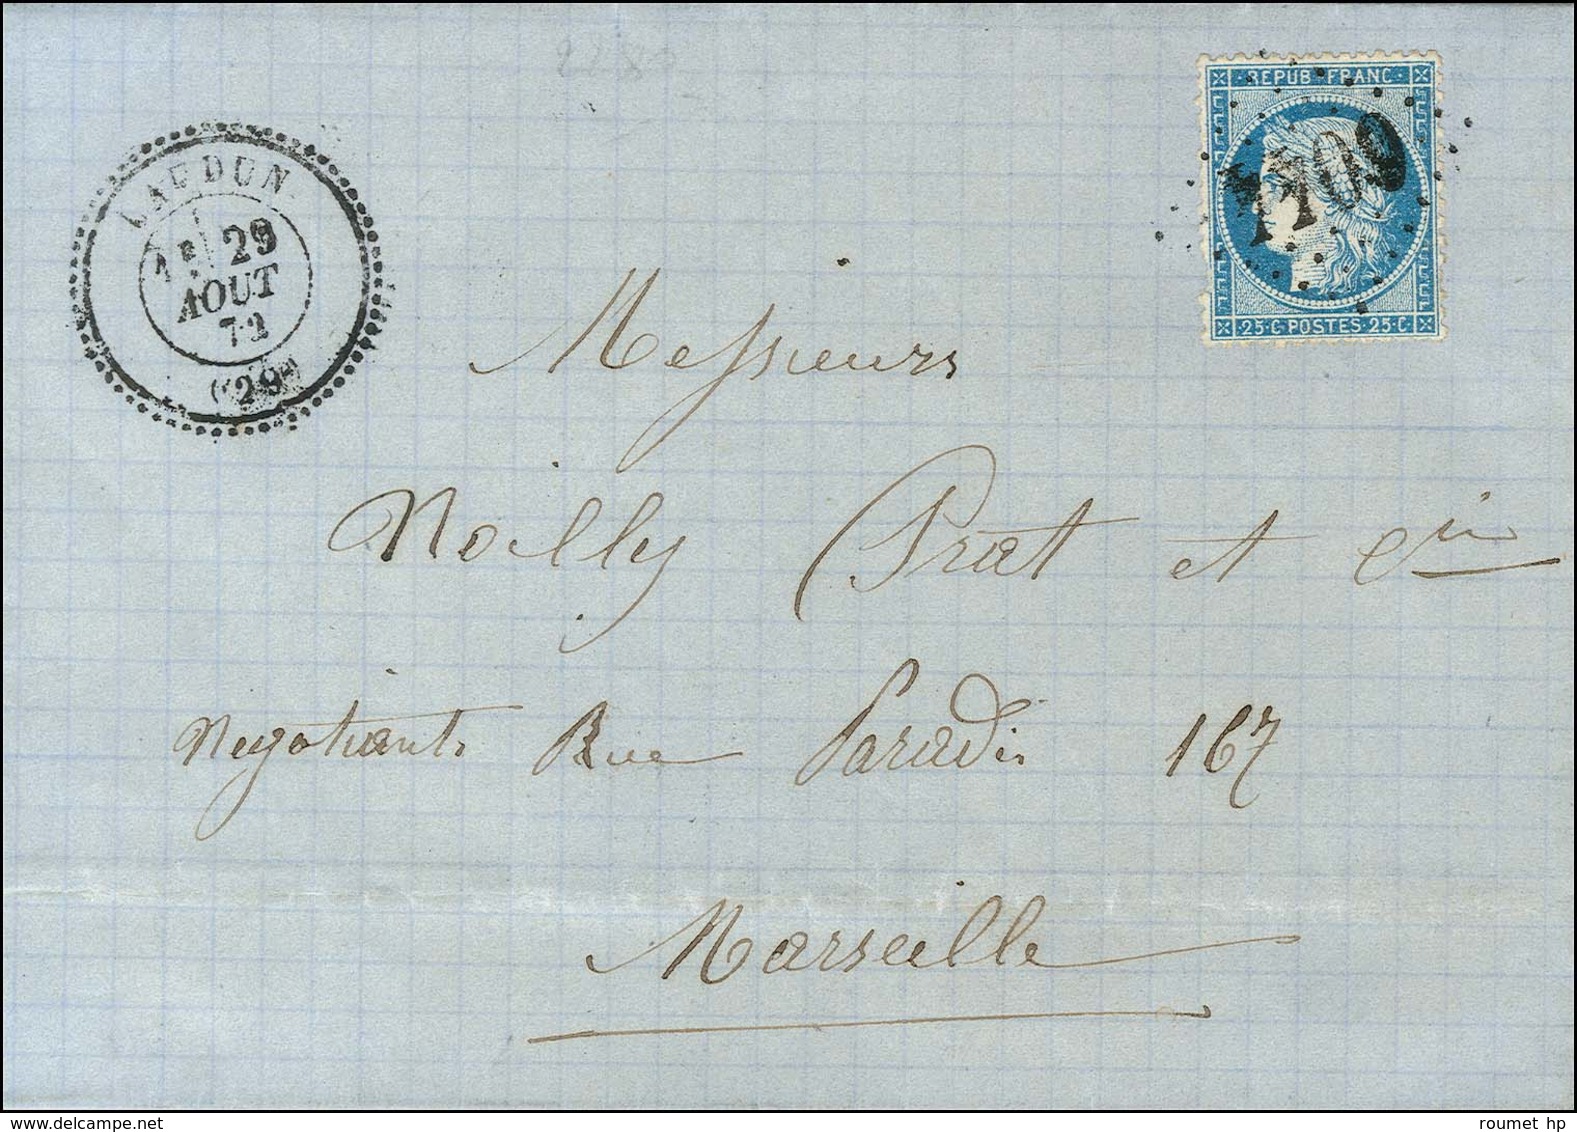 REPUB FRANC
LAUDUN
1E 29
AOUT
72
(29)
25·C POSTES 25·C
Messieurs
Noilly Prat et Cie
Negotiants Rue Paradis 167
Marseille
delcampe.net
roumet hp